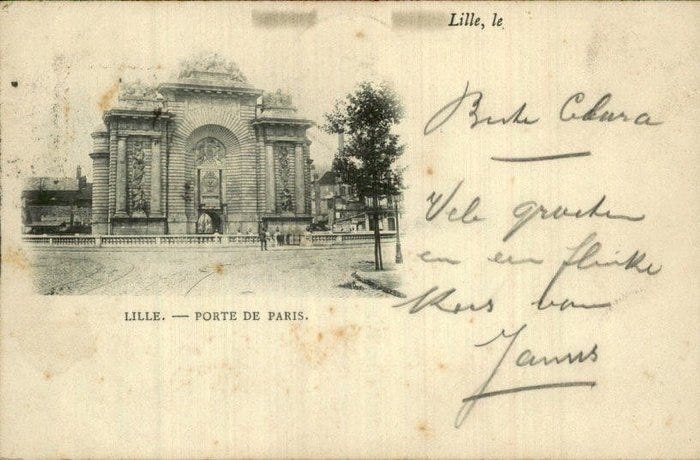 Lille, le
Beste Clara
Vele groeten
en een flinke
Kus van
Jannus
LILLE. — PORTE DE PARIS.